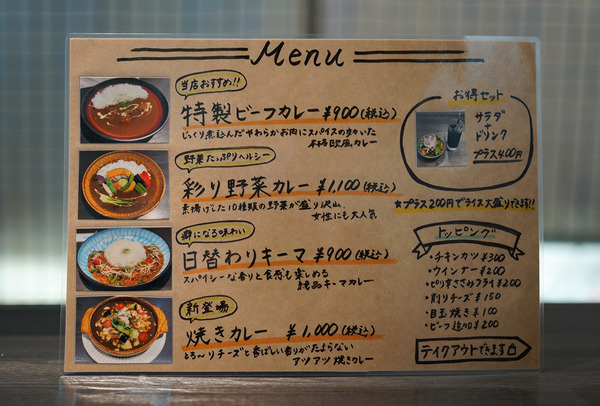 Menu
当店おすすめ!!
特製ビーフカレー ¥900(税込)
じっくり煮込んだやわらかお肉にスパイスの歩かいた
本格欧風カレー
野菜たっぷりヘルシー
彩り野菜カレー ¥1,100(税込)
素揚げした10種類の野菜が盛り沢山、
女性にも大人気
癖になる味わい
日替わりキーマ ¥900(税込)
スパイシーな香りと食感も楽しめる
絶品キーマカレー
新登場
焼きカレー ¥1,000(税込)
とろ〜りチーズと香ばしい香りがたまらない
アツアツ焼きカレー
お得セット
サラダ
+
ドリンク
プラス400円
★プラス200円でライス大盛りできます!!
トッピング
・チキンカツ ¥300
・ウインナー ¥200
・ピリ辛ささみフライ ¥200
・削りチーズ ¥150
・目玉焼き ¥100
・ビーフ追加 ¥200
テイクアウトできます